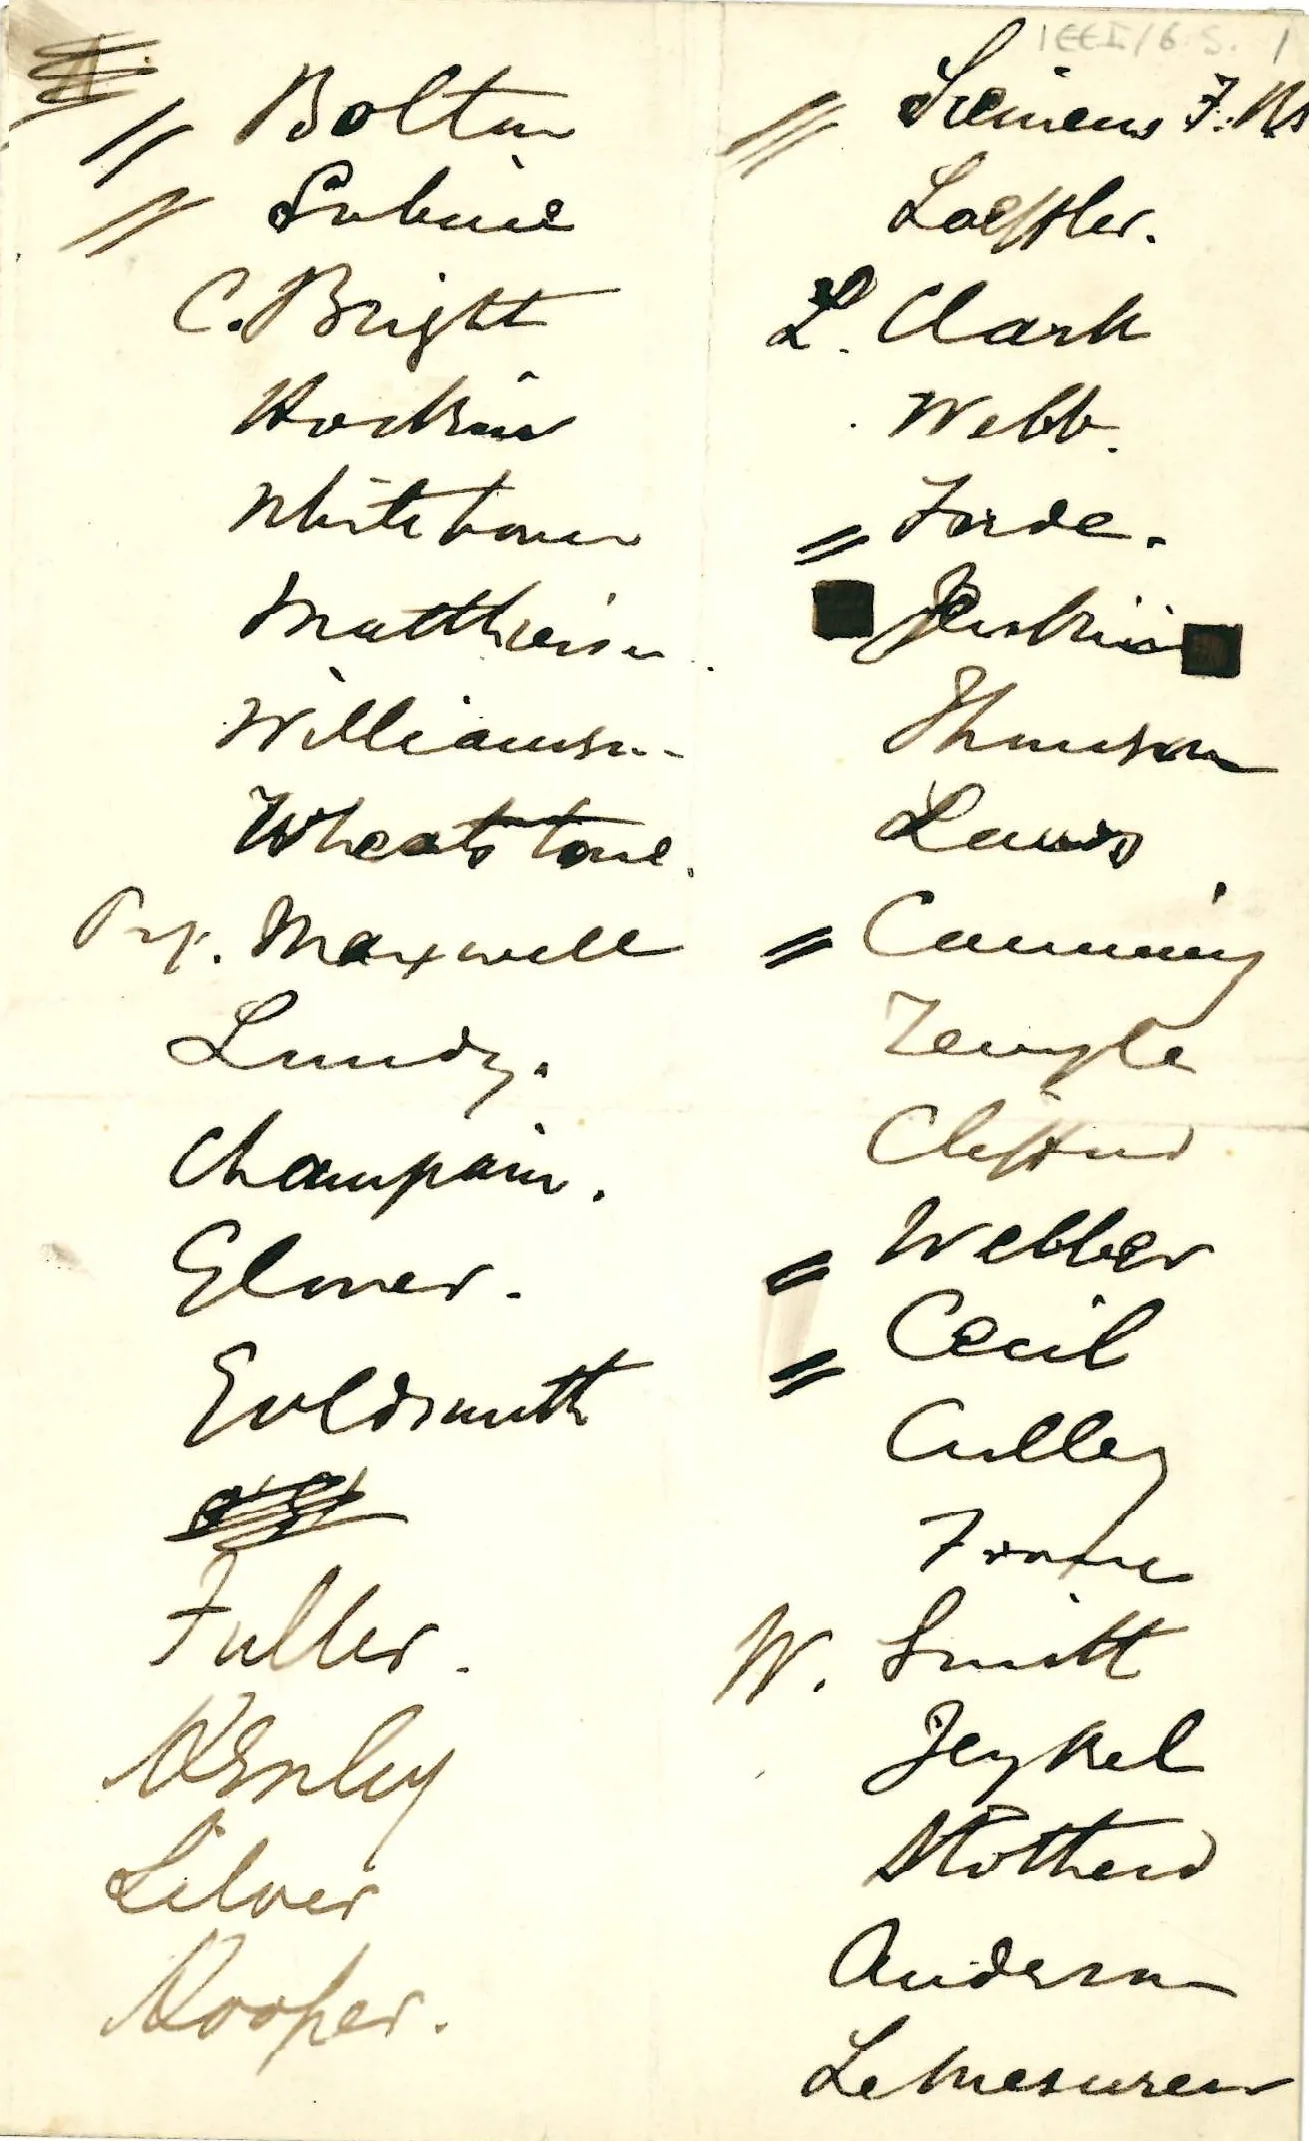 IEEI/6.S. 1
Bolton
Sabine
C. Bright
Hockin
Whitehouse
Matthiesen
Williamson
Wheatstone.
Prof. Maxwell
Lundy.
Champain.
Elmer.
Goldsmith
Fuller.
Henley
Silver
Hooper.
Siemens
Loeffler.
L. Clark
Webb.
Forde.
Jenkin
Thomson
Laws
Cumming
Temple
Clifford
Webber
Cecil
Culley
W. Smith
Jeykel
Stotherd
Anderson
Le Mesurier